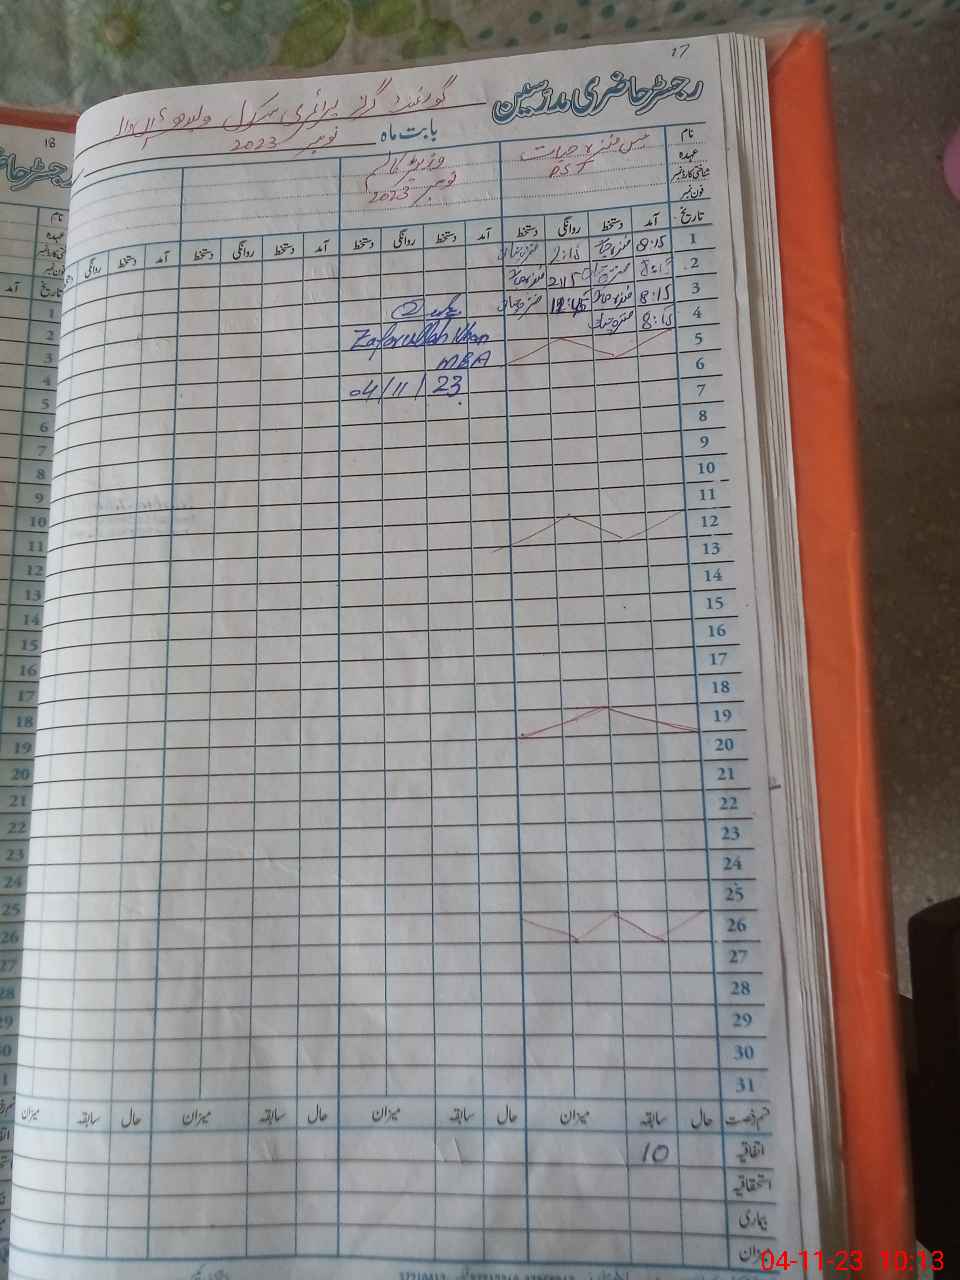 17
رجسٹر حاضری مدرسین
گورنمنٹ گرلز پرائمری سکول
بابت ماہ نومبر 2023
نام
عہدہ
شناختی کارڈ نمبر
فون نمبر
مس منزہ حیات
PST
نومبر 2023
تاریخ آمد دستخط روانگی دستخط آمد دستخط روانگی دستخط آمد دستخط روانگی دستخط آمد دستخط روانگی
1 8:15 منزہ حیات 2:15 منزہ حیات
2 8:15 منزہ حیات 2:15 منزہ حیات
3 8:15 منزہ حیات 12:45 منزہ حیات
4 8:15 منزہ حیات
5
6
7
Zafarullah Khan
MEA
04/11/23
8
9
10
11
12
13
14
15
16
17
18
19
20
21
22
23
24
25
26
27
28
29
30
31
قسم رخصت حال سابقہ میزان حال سابقہ میزان حال سابقہ میزان حال سابقہ میزان
اتفاقیہ 10
استحقاقیہ
بیماری
میزان
18
نام
عہدہ
تاریخ
آمد
1
2
3
4
5
6
7
8
9
10
11
12
13
14
15
16
17
18
19
20
21
22
23
24
25
26
27
28
29
04-11-23 10:13